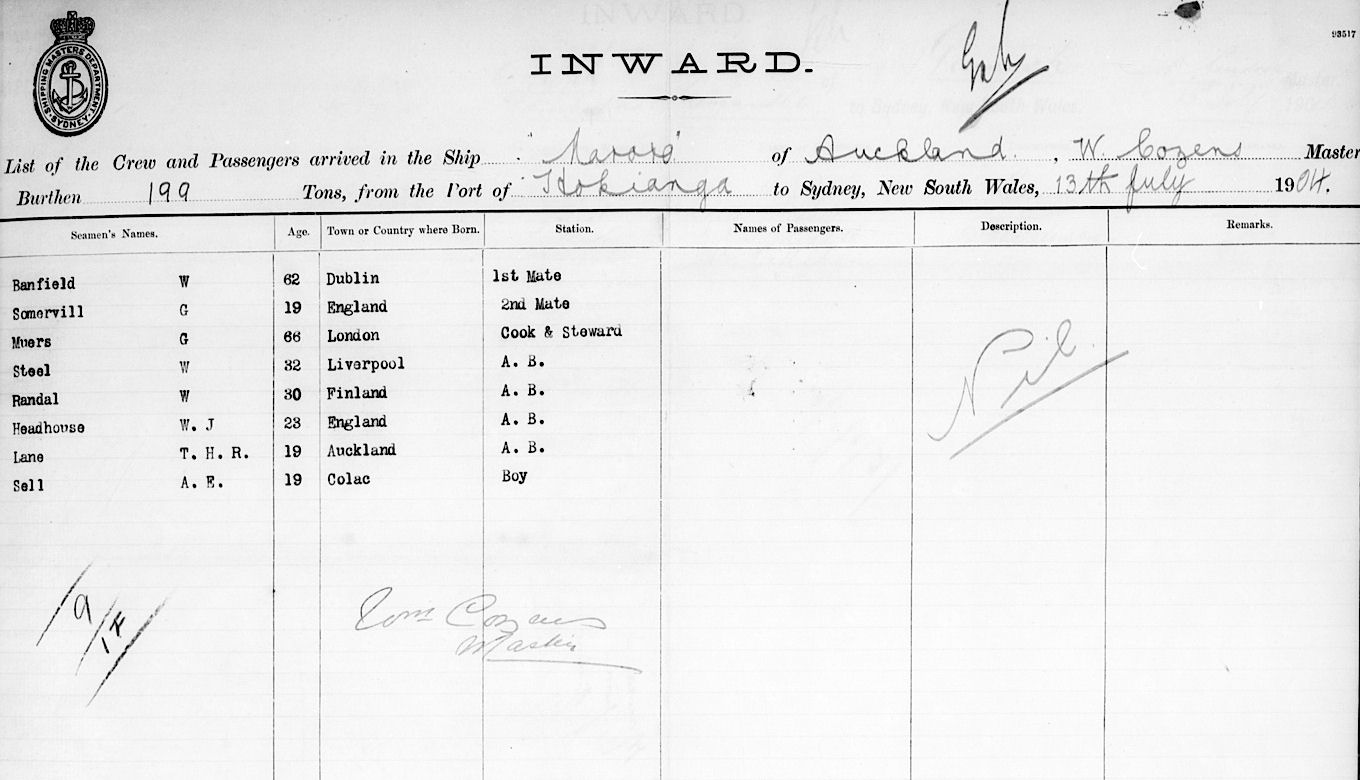 93517
SHIPPING MASTERS DEPARTMENT
SYDNEY
INWARD.
List of the Crew and Passengers arrived in the Ship "Marore" of Auckland, W. Cozens Master
Burthen 199 Tons, from the Port of Hokianga to Sydney, New South Wales, 13th July 1904.
Seamen's Names. Age. Town or Country where Born. Station. Names of Passengers. Description. Remarks.
Banfield W 62 Dublin 1st Mate
Somervill G 19 England 2nd Mate
Muers G 66 London Cook & Steward
Steel W 32 Liverpool A. B.
Randal W 30 Finland A. B.
Headhouse W. J 23 England A. B.
Lane T. H. R. 19 Auckland A. B.
Sell A. E. 19 Colac Boy
Nil
9
1 F
Wm Cozens
Master